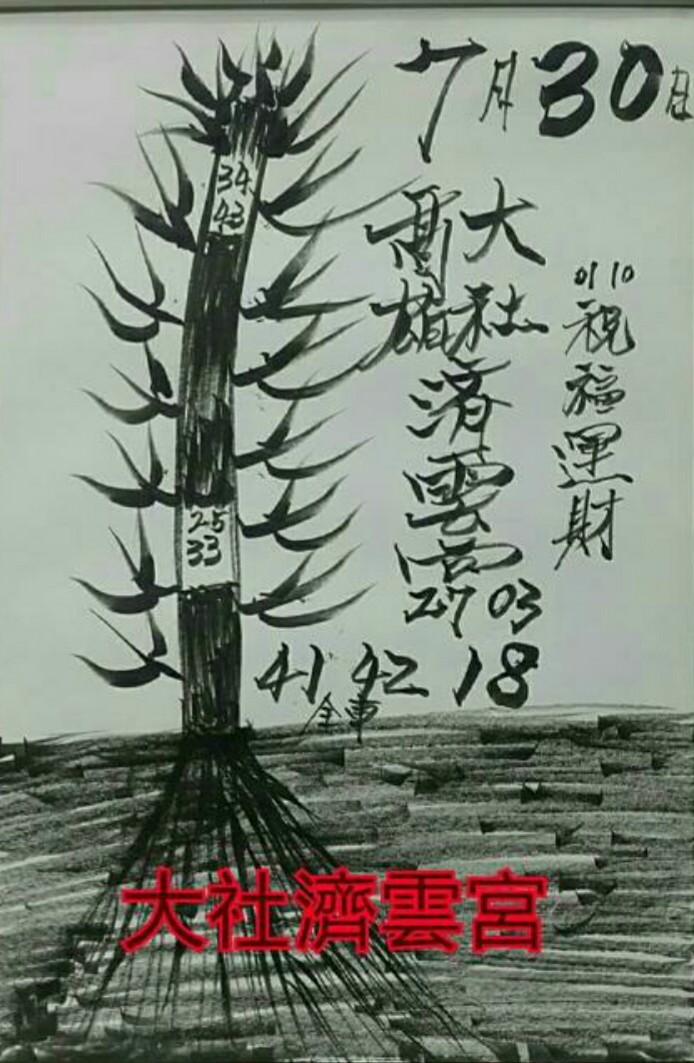 7月30日
大社
高雄
濟雲宮
01 10
祝福運財
34
43
25
33
27 03
41 42 18
全車
大社濟雲宮